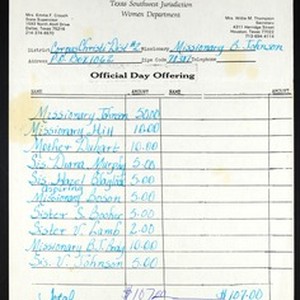 Texas Southwest Jurisdiction
Women Department
Mrs. Emma F. Crouch
State Supervisor
Dallas, Texas 75216
Mrs. Willie M. Thompson
Secretary
4311 Herridge Street
Houston, Texas 77022
District Corpus Christi Dist #2 Missionary Missionary B. Johnson
P.O. Box 1062 Zip Code Telephone
Official Day Offering
NAME AMOUNT NAME AMOUNT
Missionary Johnson 50.00
Missionary Hill 10.00
Mother Duhart 10.00
Sis. Diana Murphy 5.00
Sis Hazel 5.00
Aspiring
Missionary Boson 5.00
Sister S. Booker 5.00
Sister V. Lamb 2.00
Missionary B.J. Gray 10.00
Sis. V. Johnson 5.00
Total $107.00 $107.00